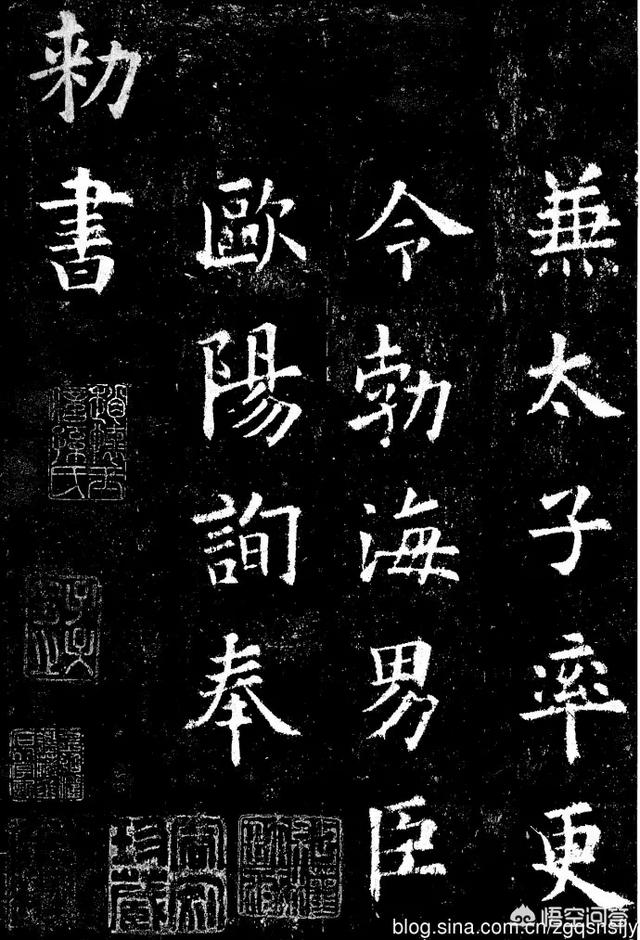 兼太子率更
令勃海男臣
歐陽詢奉
勑書
悟空问答
blog.sina.com.cn/zgqsnsfjy